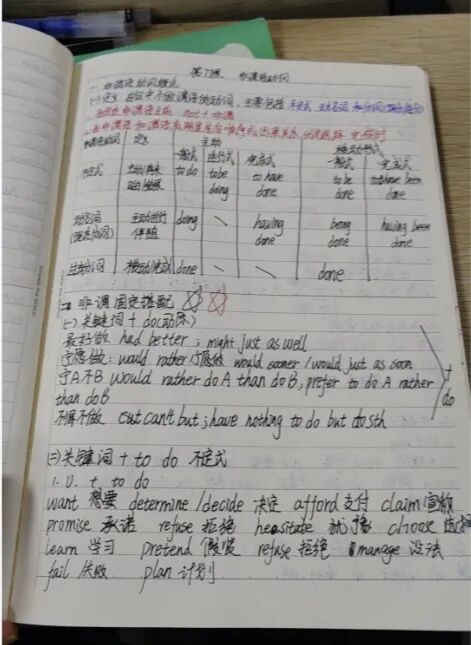 第7课 非谓语动词
一. 非谓语动词概点
(一) 定义: 在句中不做谓语的动词, 主要包括 不定式, 动名词 和分词
not + 非谓
非谓语动词 定义 主动 被动形式
一般式 进行式 完成式 一般式 完成式
不定式 to do to be doing to have done to be done to have been done
动名词 (现在分词) 主动进行 伴随 doing \ having done being done having been done
过去分词 done \ \ done
二. 非谓固定搭配 ☆☆
(一) 关键词 + do(动原)
最好做 had better ; might just as well
宁愿做: would rather / would sooner / would just as soon
宁A不B would rather do A than do B, prefer to do A rather
than do B
+ do
不得不做 can't but ; have nothing to do but do sth
(二) 关键词 + to do 不定式
1. v. + to do
want 想要 determine / decide 决定 afford 支付 claim 宣称
promise 承诺 refuse 拒绝 hesitate 犹豫 choose 选择
learn 学习 pretend 假装 refuse 拒绝 manage 设法
fail 失败 plan 计划